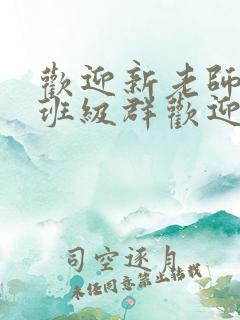 歡迎新老師
班級群歡迎
司空逐月
未经同意禁止转载